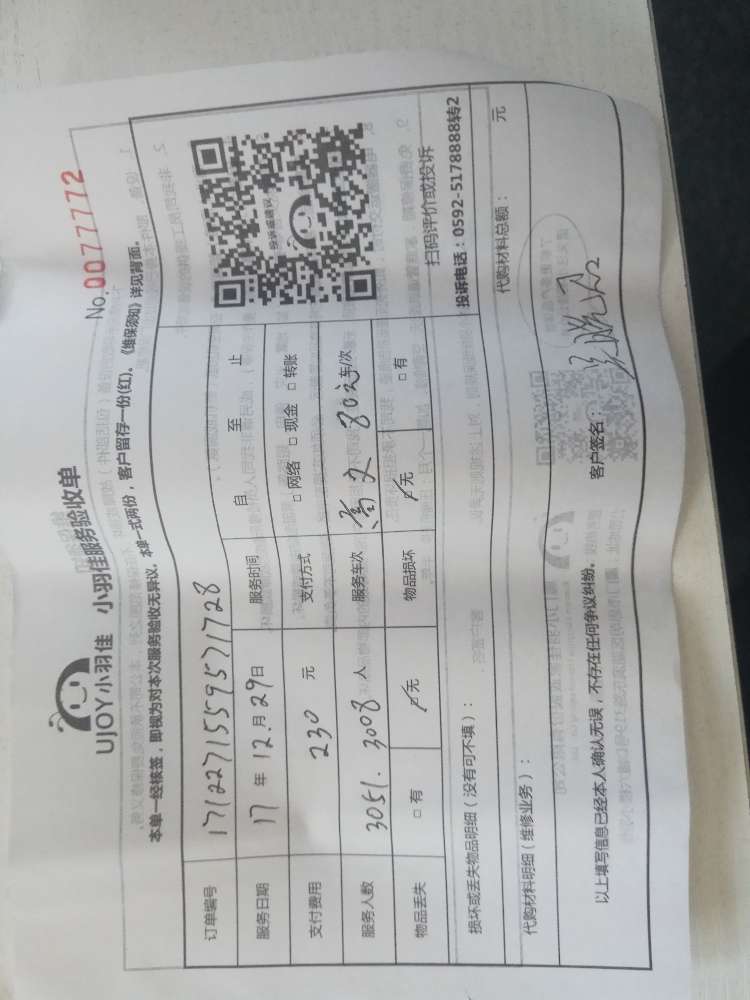 UJOY小羽佳 小羽佳服务验收单
No.0077772
本单一经核签，即视为对本次服务验收无异议。本单一式两份，客户留存一份(红)。《维保须知》详见背面。
订单编号 171227155957 1728
服务日期 17 年 12 月 29 日 服务时间 自 至 止
支付费用 230 元 支付方式 □ 网络 □ 现金 □ 转账
服务人数 3051. 3008 人 服务车次 80元 车/次
物品丢失 □ 有 □ 无 物品损坏 □ 无 □ 有
投诉或建议
扫码评价或投诉
投诉电话：0592-5178888转2
损坏或丢失物品明细（没有可不填）：
代购材料明细（维修业务）： 代购材料总额： 元
以上填写信息已经本人确认无误，不存在任何争议纠纷。 客户签名：